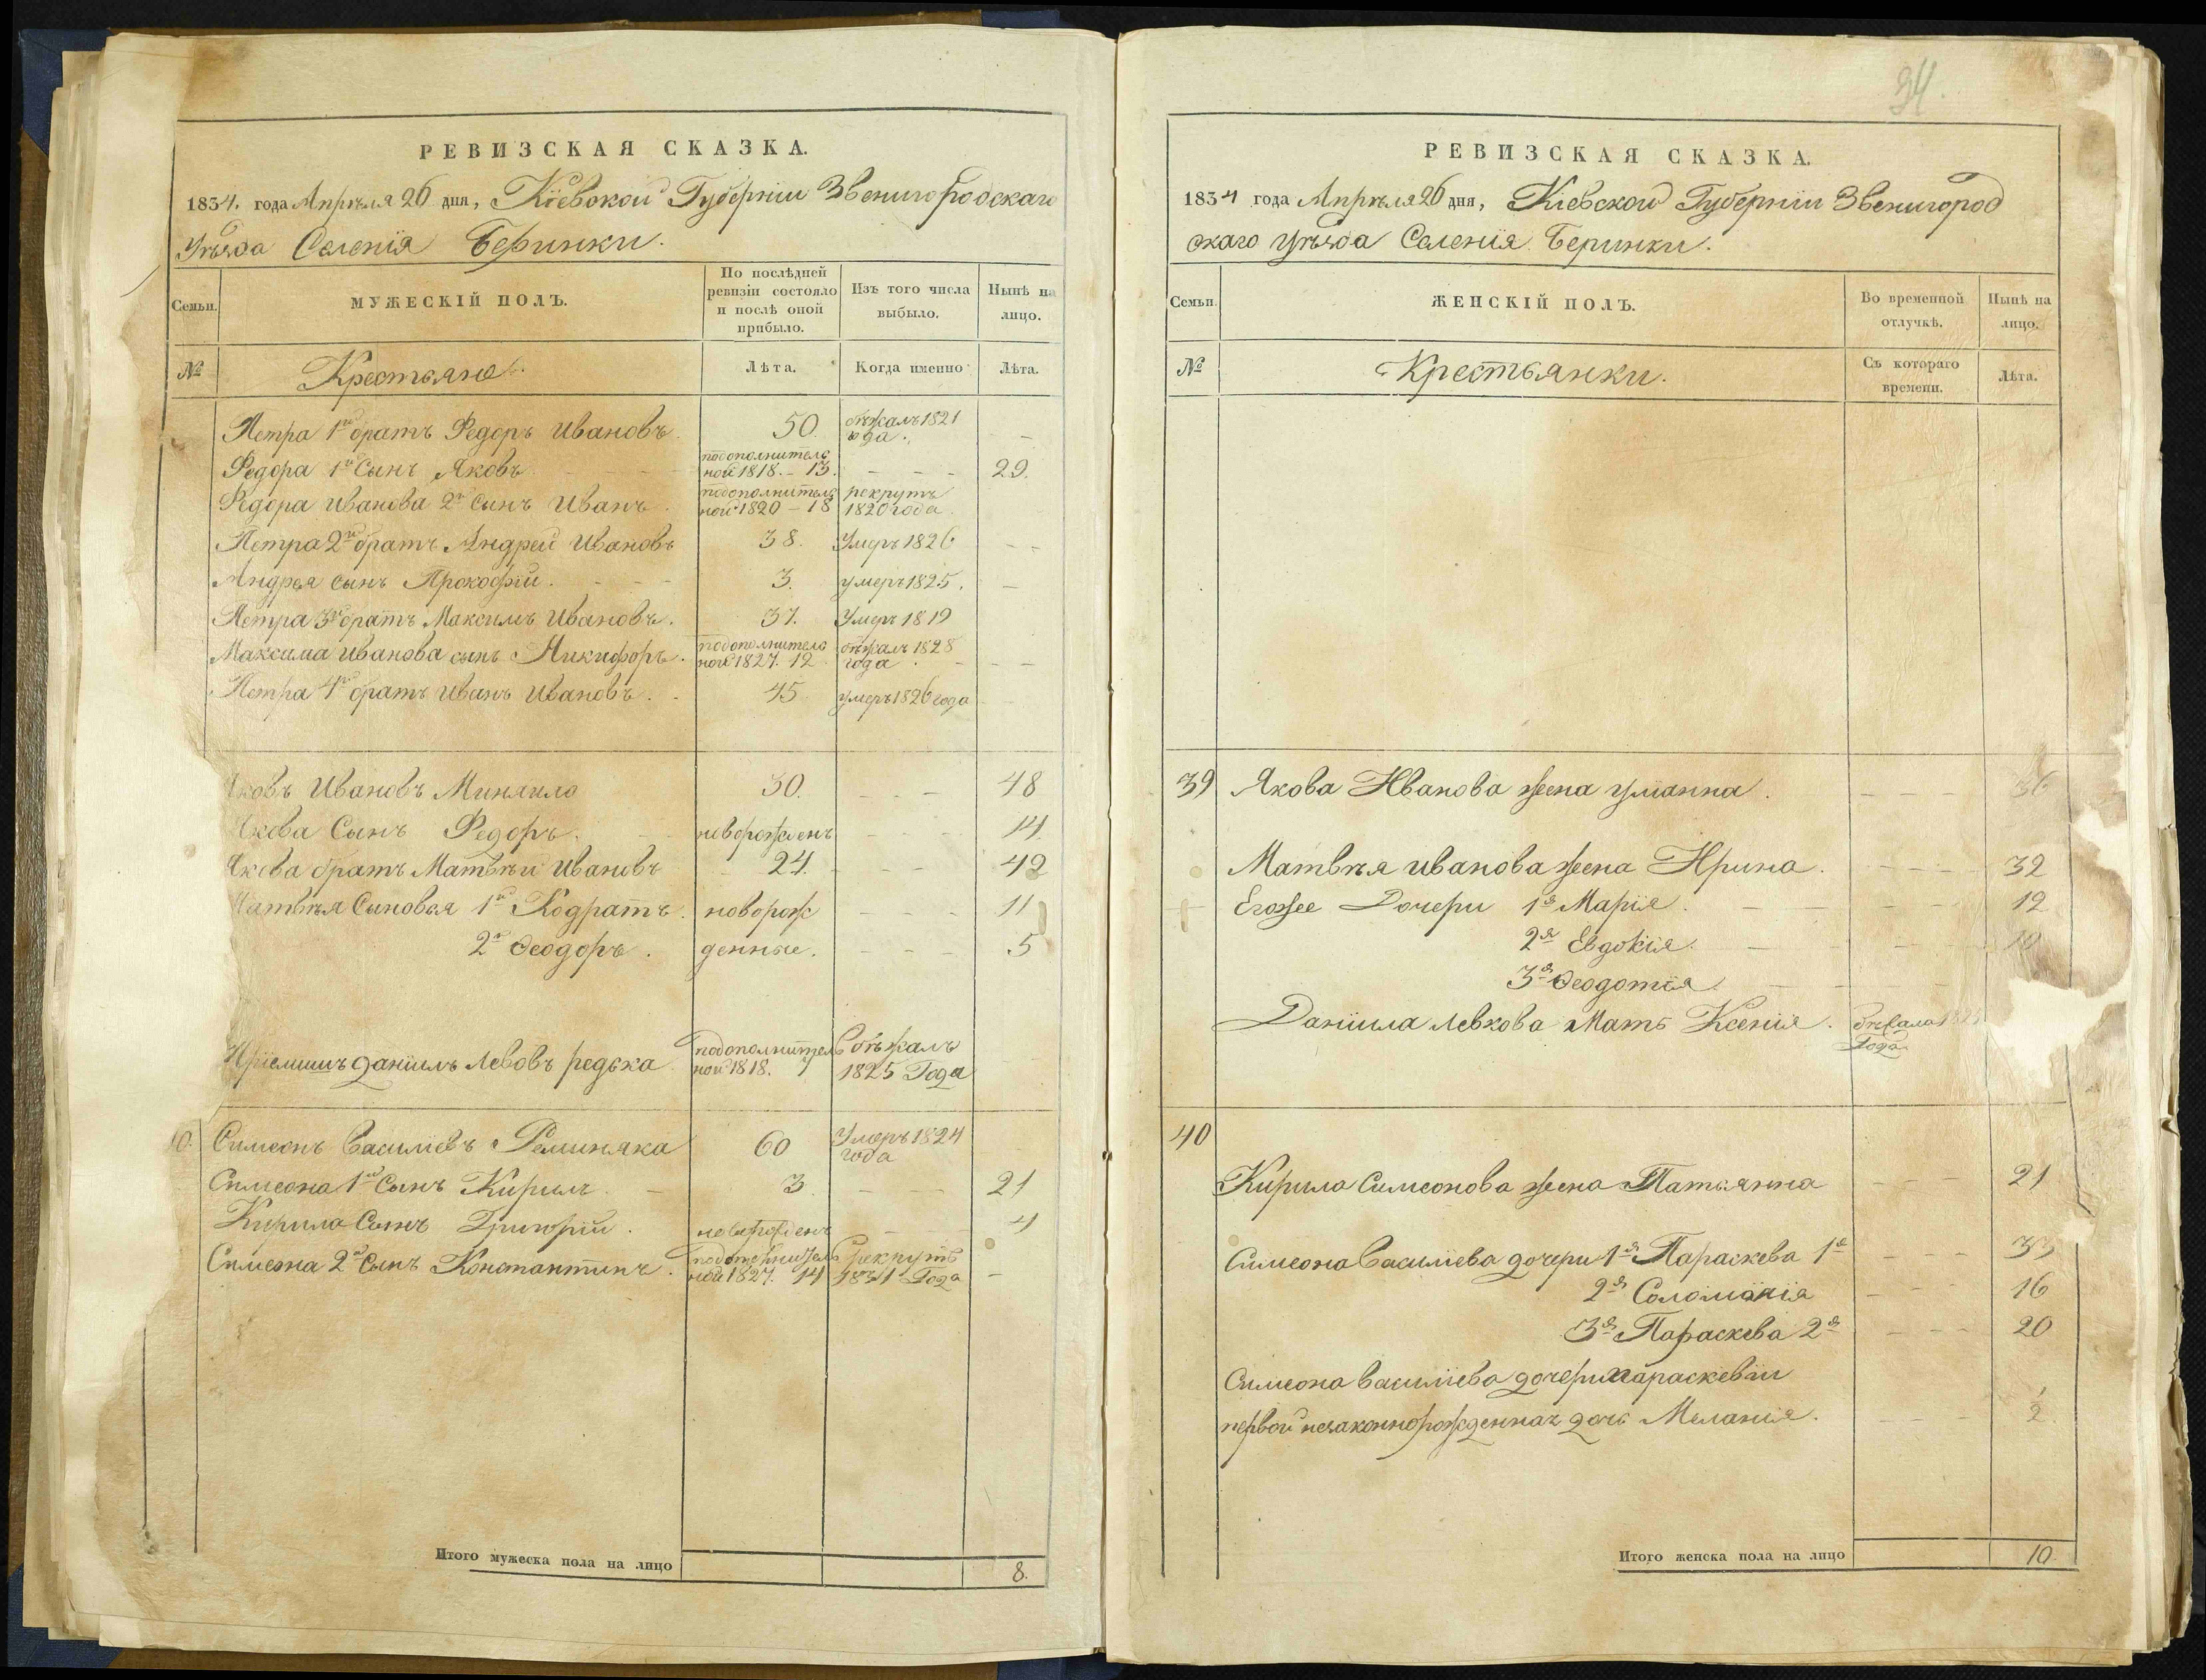 РЕВИЗСКАЯ СКАЗКА.
1834. года Апрѣля 26 дня, Кіевской Губерніи Звенигородскаго
Уѣзда Селенія Беринки.
Семьи.
МУЖЕСКІЙ ПОЛЪ.
По послѣдней ревизіи состояло и послѣ оной прибыло.
Изъ того числа выбыло.
Нынѣ на лицо.
№
Крестьяне.
Лѣта.
Когда именно
Лѣта.
Петра 1й братъ Федоръ Ивановъ 50. бѣжалъ 1821 года.
Федора 1й Сынъ Яковъ подополнитель ной 1818. - 13. 29.
Федора Иванова 2й сынъ Иванъ подополнитель ной 1820 - 18 рекрутъ 1820 года
Петра 2й братъ Андрей Ивановъ 38. Умеръ 1826
Андрея сынъ Прокофій. 3. умеръ 1825.
Петра 3й братъ Максимъ Ивановъ. 37. Умеръ 1819
Максима Иванова сынъ Никифоръ. подополнитель ной 1827. 12 бѣжалъ 1828 года.
Петра 4й братъ Иванъ Ивановъ. 45 умеръ 1826 года
Яковъ Ивановъ Миняило 30. 48
Якова Сынъ Федоръ. новорожденъ 14.
Якова братъ Матвѣй Ивановъ 24. 42
Матвѣя Сыновья 1й Кодратъ. новорож 11
2й Феодоръ. денные. 5
Пріемишъ Даніилъ Левовъ редька подополнитель ной 1818. 7 бѣжалъ 1825 Года
Симеонъ Василіевъ Реминяка 60 Умеръ 1824 года
Симеона 1й Сынъ Кирилъ. 3. 21
Кирила Сынъ Григорій. новорожденъ 4
Симеона 2й Сынъ Константинъ. подополнитель ной 1827. 14 рекрутъ 1831 Года
Итого мужеска пола на лицо 8.
34.
РЕВИЗСКАЯ СКАЗКА.
1834 года Апрѣля 26 дня, Кіевской Губерніи Звенигород
скаго Уѣзда Селенія Беринки.
Семьи.
ЖЕНСКІЙ ПОЛЪ.
Во временной отлучкѣ.
Нынѣ на лицо.
№
Крестьянки.
Съ котораго времени.
Лѣта.
39 Якова Иванова жена Уліанна. 36
Матвѣя Иванова жена Ирина. 32
Егожее Дочери 1я Марія. 12
2я Евдокія. 10
3я Феодотія.
Даніила Левкова Мать Ксенія. бѣжала Года
40
Кирила Симеонова жена Татьянна 21
Симеона Василіева дочери 1я Параскева 1я 33
2я Соломинія 16
3я Параскева 2я 20
Симеона Василіева дочери параскевіи
первой незаконнорожденная дочь Меланія. 2
Итого женска пола на лицо 10.